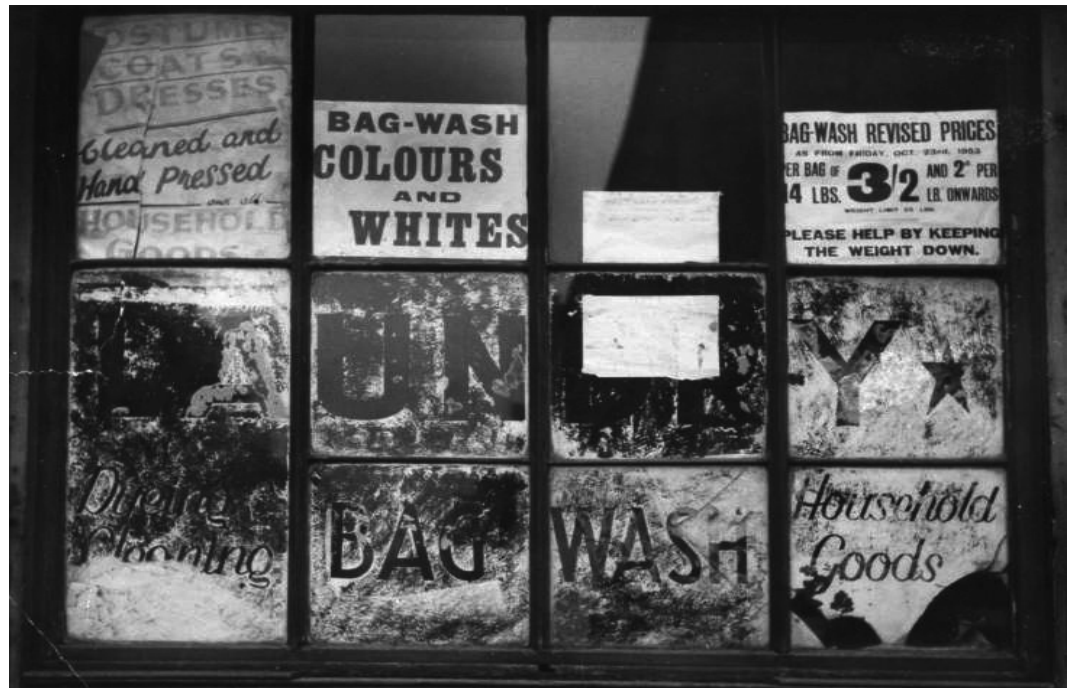 COSTUMES
COATS &
DRESSES
Cleaned and
Hand Pressed
HOUSEHOLD
GOODS
BAG-WASH
COLOURS
AND
WHITES
BAG-WASH REVISED PRICES
AS FROM FRIDAY, OCT. 23rd, 1953
PER BAG OF 14 LBS. 3/2 AND 2ᴰ PER LB. ONWARDS
WEIGHT LIMIT 25 LBS.
PLEASE HELP BY KEEPING
THE WEIGHT DOWN.
LAUNDRY ★
Dyeing
Cleaning
BAG WASH
Household
Goods